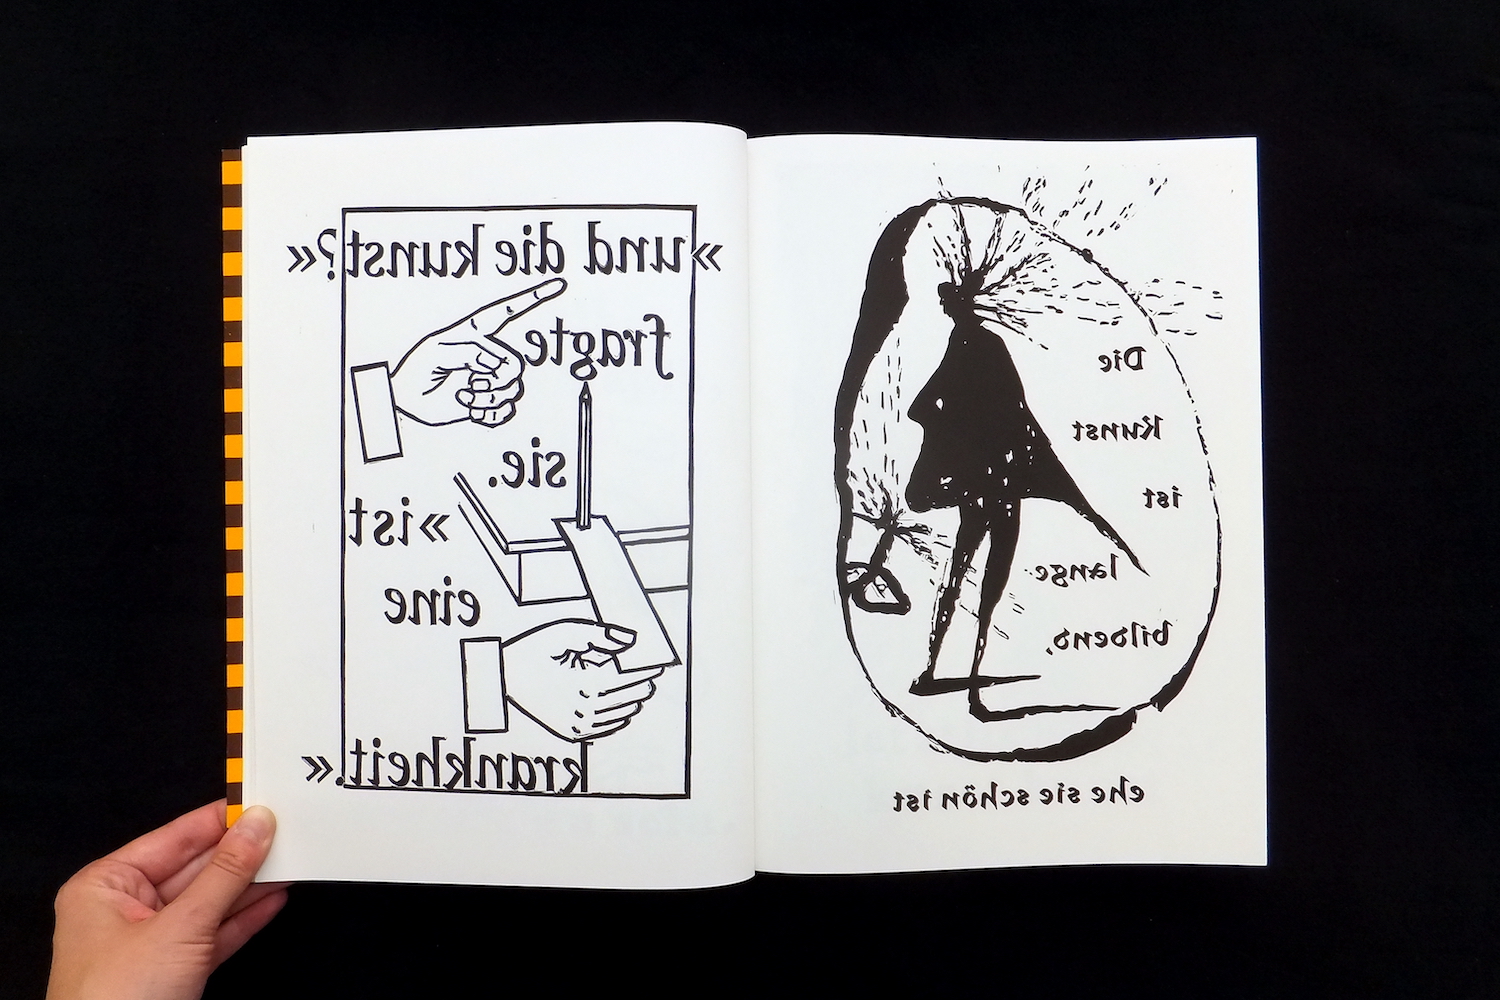 »und die kunst?«
fragte
sie.
»ist
eine
krankheit.«
Die
Kunst
ist
lange
bildend,
ehe sie schön ist